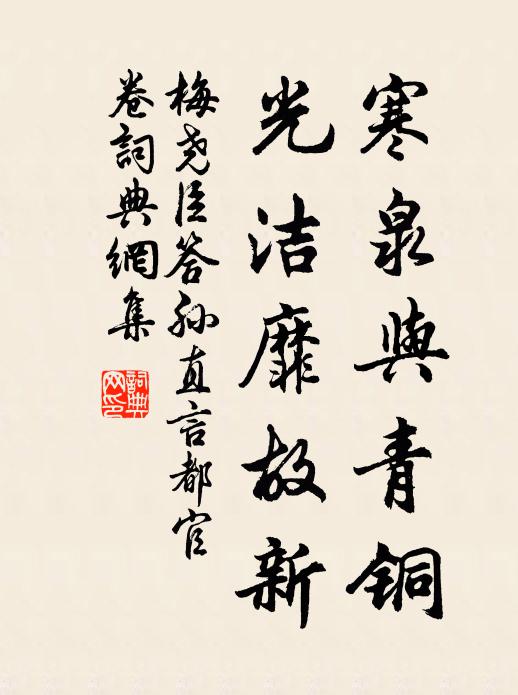 寒泉與青铜
光洁靡故新
梅尧臣答孙直言都官
卷詞典網集
詞典网印